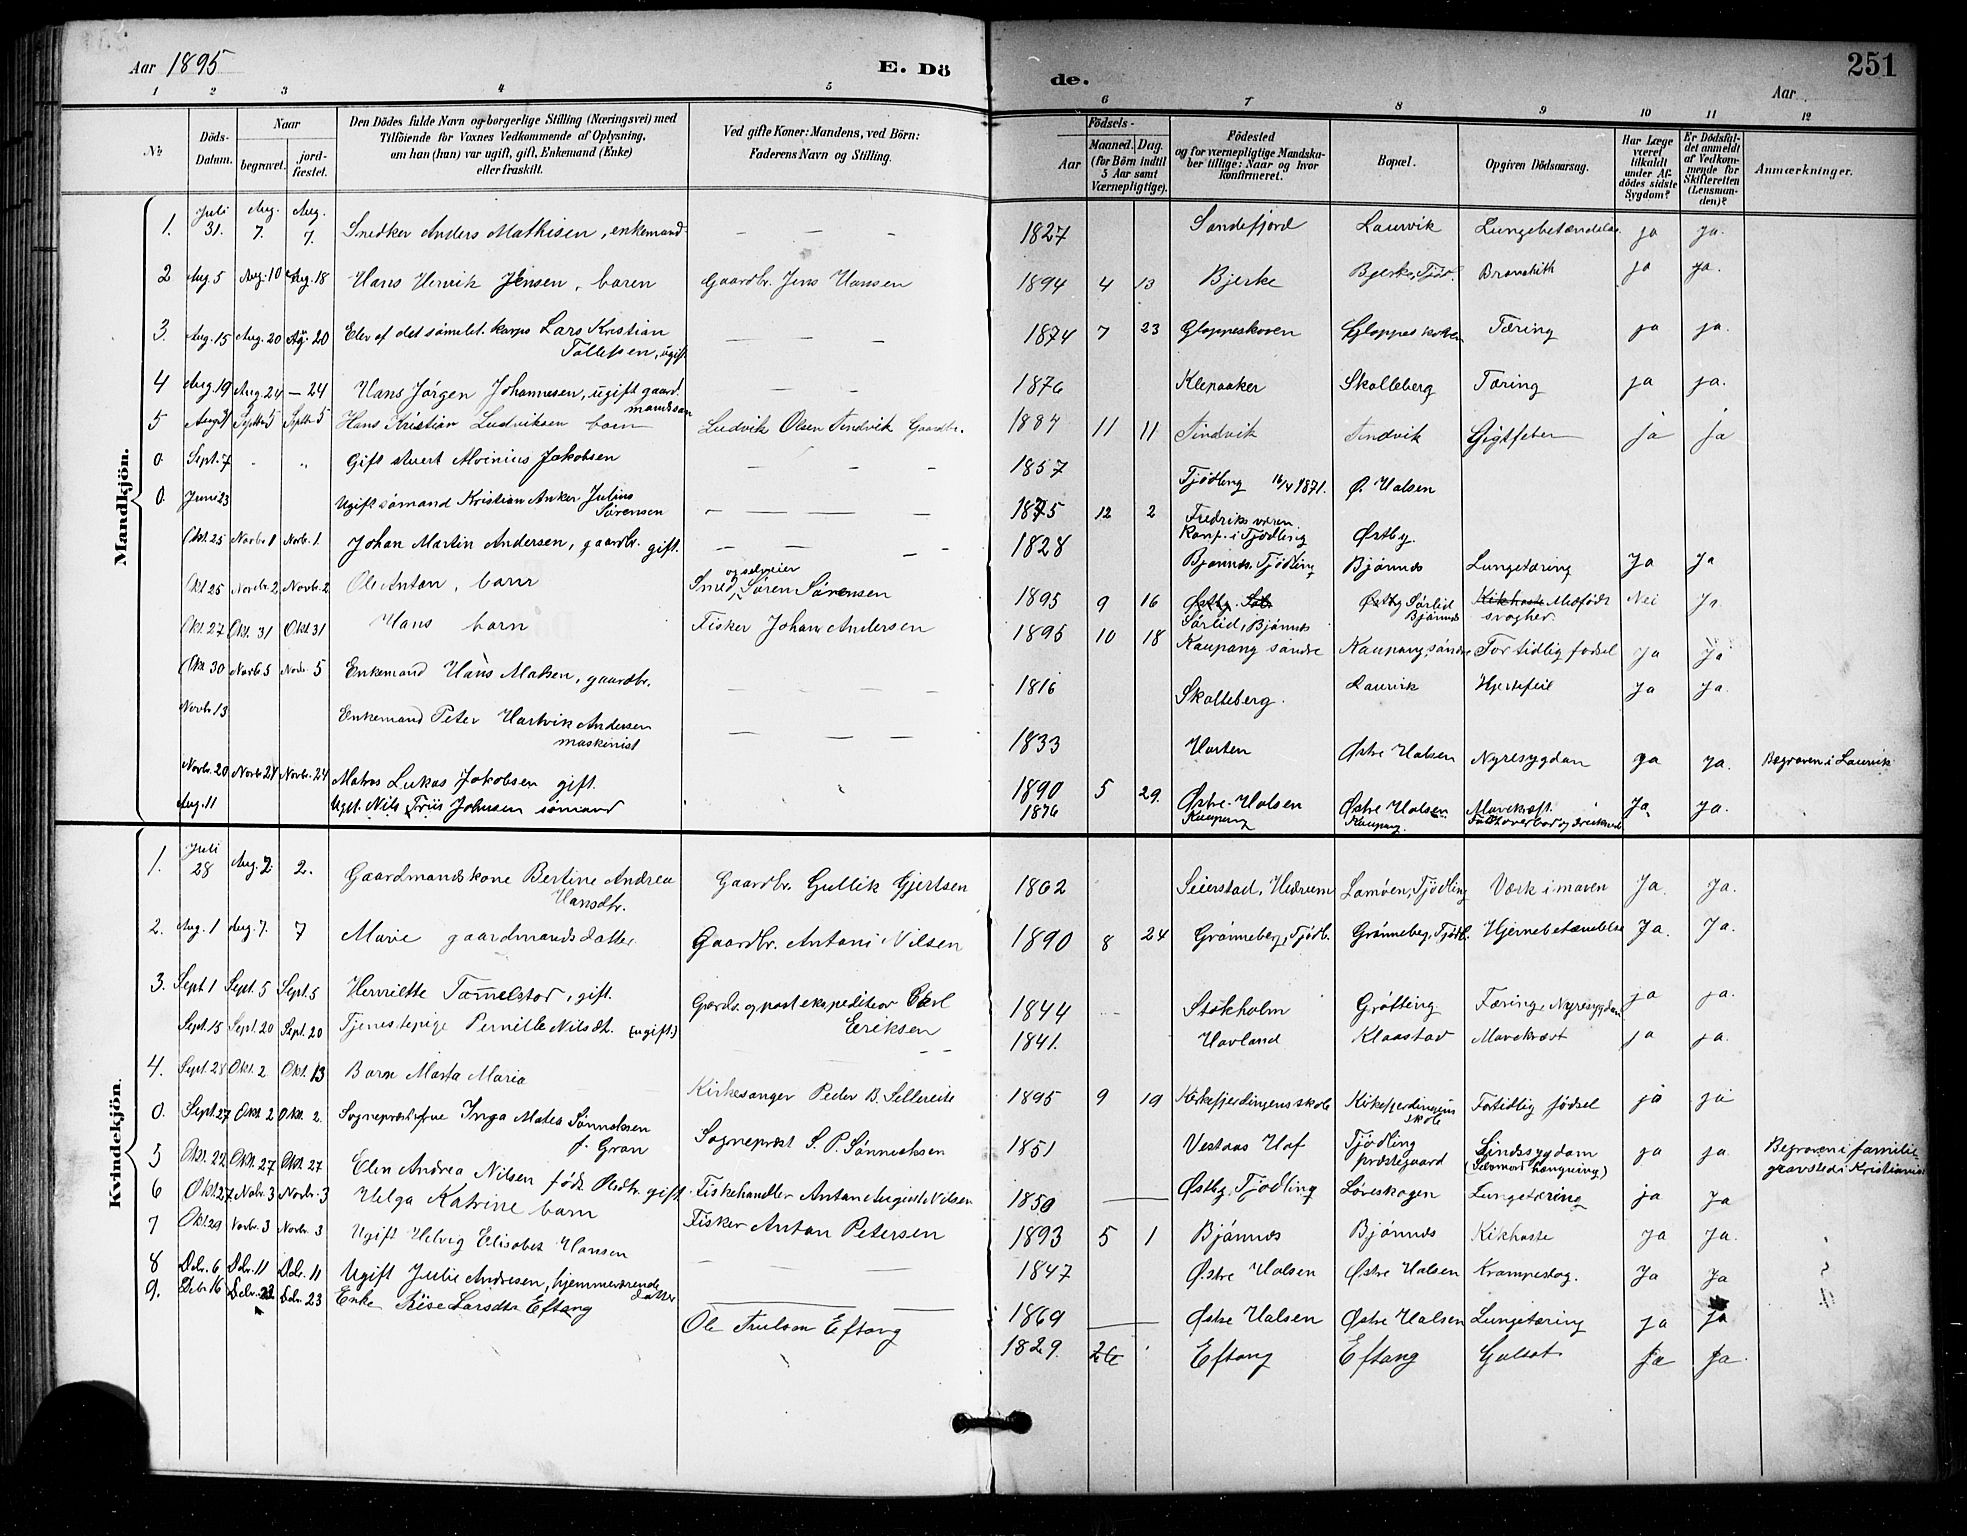 Aar 1895
E. Dö
de.
251
Aar
1 2 3 4 5 6 7 8 9 10 11 12
No
Döds-
Datum.
Naar
begravet.
jord-
fæstet.
Den Dödes fulde Navn og borgerlige Stilling (Næringsvei) med
Tilföiende for Voxnes Vedkommende af Oplysning,
om han (hun) var ugift, gift, Enkemand (Enke)
eller fraskilt.
Ved gifte Koner: Mandens, ved Börn:
Faderens Navn og Stilling.
Födsels-
Aar
Maaned. Dag.
(for Börn indtil
5 Aar samt
Værnepligtige).
Födested
og for værnepligtige Mandska-
ber tillige: Naar og hvor
Konfirmeret.
Bopæl.
Opgiven Dödsaarsag.
Har Læge
været
tilkaldt
under Af-
dödes sidste
Sygdom?
Er Dödsfal-
det anmeldt
af Vedkom-
mende for
Skifteretten
(Lensman-
den)?
Anmærkninger.
Mandkjön.
1. Juli 31. Aug. 7. Aug. 7. Snedker Anders Mathisen, enkemand — — — 1827 Sandefjord Laurvik Lungebetændelse ja ja.
2 Aug. 5 Aug. 10 Aug. 18 Hans Henrik Jensen, barn Gaardbr. Jens Hansen 1894 4 13 Bjerke Bjerke, Tjød. Bronchith ja ja.
3. Aug. 15 Aug. 20 Aug. 20 Elev af det sømilit. korps Lars Kristian
Tollefsen, ugift — — — 1874 7 23 Gloppeskoven Gloppeskoven Tæring ja ja.
4 Aug. 19 Aug. 24 — 24 Hans Jørgen Johannesen, ugift gaard
mandssøn — — 1876 Klepaaker Skalleberg Tæring ja ja.
5 Aug. 31 Septbr 5 Septbr 5 Hans Kristian Ludviksen barn Ludvik Olsen Tindvik Gaardbr. 1887 11 11 Tindvik Tindvik Gigtfeber ja ja
0. Sept. 7 " " Gift stuert Alvinius Jakobsen — — — 1857 Tjødling 16/4 1871. Ø. Halsen
0. Juni 23 Ugift sømand Kristian Anker Julius
Sørensen — — — 1875 12 2 Fredriksværn.
Konf. i Tjødling Østby.
Okt. 25 Novbr. 1 Novbr. 1 Johan Martin Andersen, gaardbr. gift. — — — 1828 Bjønnes, Tjødling Bjønnes Lungetæring Ja Ja
Okt 25 Novbr. 2 Novbr. 2 Ole Anton, barn Smed og selveier Søren Sørensen 1895 9 16 Østby
Sørlid, Bjønnes Østby Sørlid
Bjønnes Kikhoste Medfødt
svaghed. Nei Ja
Okt. 27 Okt. 31 Okt 31 Hans barn Fisker Johan Andersen 1895 10 18 Kaupang søndre Kaupang, søndre For tidlig fødsel Ja Ja
Okt. 30 Novb. 5 Novbr. 5 Enkemand Hans Madsen, gaardbr. — — — 1816 Skalleberg. Laurvik Hjertefeil Ja Ja.
Novbr. 13 Enkemand Peter Hartvik Andersen
maskinist — — — 1833 Horten Østre Halsen Nyresygdom ja ja. Begraven i Laurvik
Novbr. 20 Novbr. 24 Novbr. 24 Matros Lukas Jakobsen gift. 1890 5 29. Østre Halsen Østre Halsen Mavekræft Ja ja.
Aug. 11 Ugift. Nils Friis Johnsen sømand 1876 Kaupang Kaupang. Faldt overbord og druknede
Kvindekjön.
1. Juli 28 Aug. 2 2. Gaardmandskone Bertine Andrea
Hansdtr. Gaardbr. Gullik Gjertsen 1862 Seierstad, Hedrum Lamøen, Tjødling Værk i maven Ja. Ja.
2. Aug. 1 Aug. 7. 7 Marie gaardmandsdatter Gaardbr. Antoni Nilsen 1890 8 24 Grønneberg, Tjødl. Grønneberg, Tjødl. Hjernebetændelse Ja. Ja.
3. Sept. 1 Sept. 5 Sept. 5 Henriette Tammelstad, gift. Gaards. og postekspeditør Carl
Eriksen 1844 Stokholm Grøtting Tæring, Nyresygdom ja ja.
Sept. 15 Sept. 20 Sept. 20 Tjenestepige Pernille Nilsdt. (ugift) — — 1841. Havland Klaastad Mavekræft ja ja.
4. Sept. 28 Okt. 2 Okt. 13 Barn Marta Maria Kirkesanger Peder B. Sellereite 1895 9 19 Kirkefjerdingens skole Kirkefjerdingens
skole Fortidlig fødsel ja ja
0. Sept. 27 Okt. 2 Okt. 2. Sogneprestfrue Inga Matea Sønnichsen
f. Gran Sogneprest S. P. Sønnichsen 1851 Vestaas Hof Tjødling
prestegaard Sindssygdom
(Selvmord hængning) ja ja. Begraven i familie
gravsted i Kristiania
5 Okt. 22 Okt. 27 Okt. 27 Elen Andrea Nilsen født Pedtr. gift. Fiskehandler Anton August Nilsen 1850 — Østby, Tjødling Løveskogen Lungetæring ja Ja
6 Okt 27 Novbr. 3 Novbr. 3 Helga Katrine barn Fisker Anton Petersen 1893 5 1 Bjønnes Bjønnes Kikhoste Ja Ja.
7 Okt 29 Novbr. 3 Novbr. 3 Ugift Helvig Elisabet Hansen — — — 1847 Østre Halsen Østre Halsen Krampeslag. Ja Ja
8 Dcbr. 6 Dcbr. 11 Dcbr. 11 Ugift Julie Andresen, hjemmeværende
datter 1869 — Østre Halsen Østre Halsen Lungetæring ja ja
9. Debr 16 Debr. 23 Dcbr. 23 Enke Larsdtr Eftang Ole Trulsen Eftang 1829. Eftang Eftang Gulsot. Ja Ja.